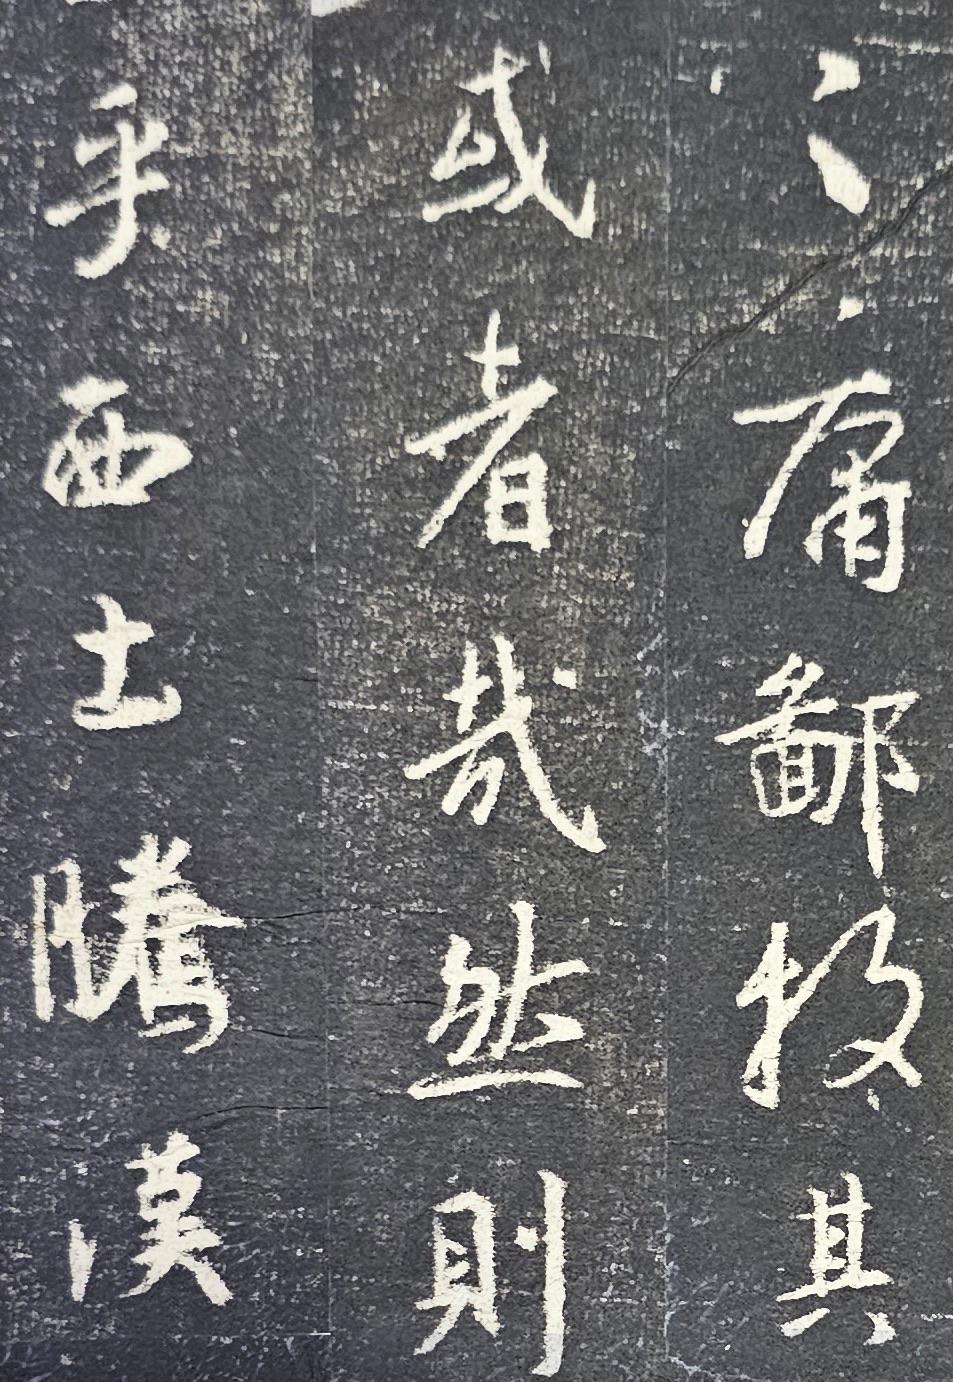 〻庸鄙投其
或者哉然則
乎西土騰漢